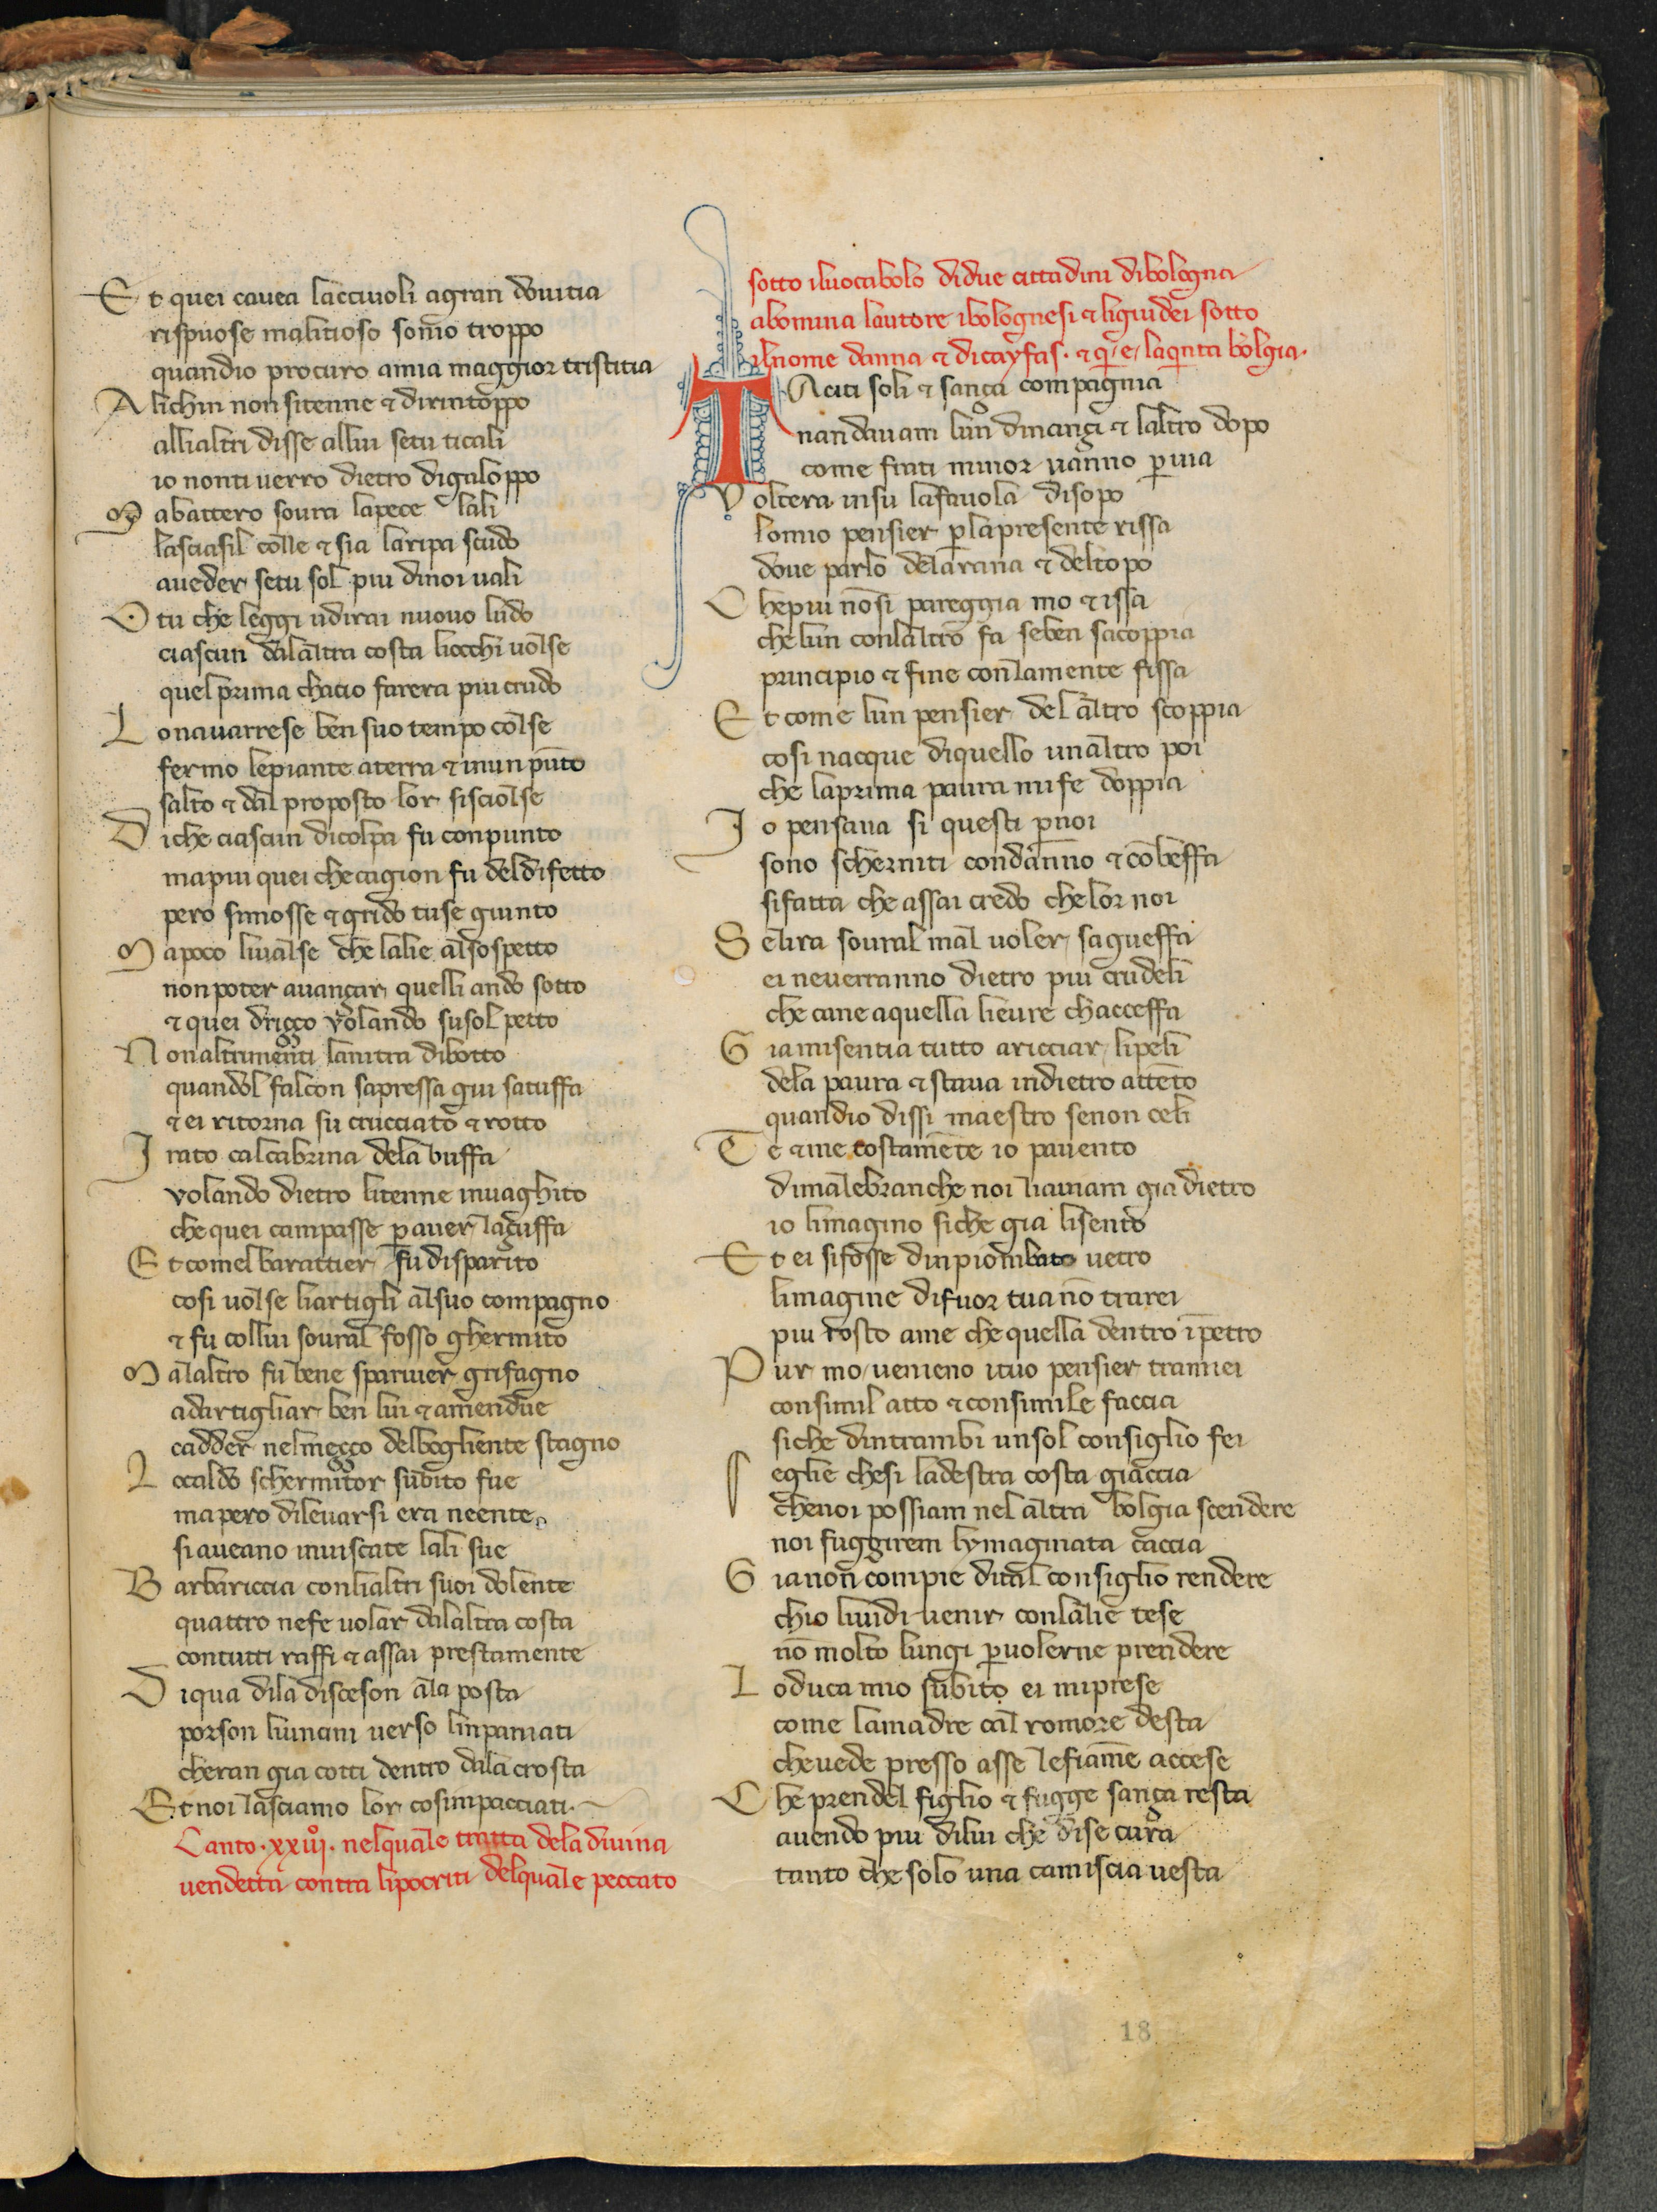 Et quei cauea lacciuoli agran douitia
rispuose malitioso somo troppo
quandio procuro amia maggior tristitia
Alichin non sitenne & dirintoppo
allialtri disse allui setu ticali
io nonti uerro dietro digaloppo
Mabattero soura lapece lali
lasciasil colle & sia laripa scudo
aueder setu sol piu dinoi uali
O tu che leggi udirai nuouo ludo
ciascun dalaltra costa liocchi uolse
quel prima chacio farera piu crudo
Lonauarrese ben suo tempo colse
fermo lepiante aterra & inun punto
salto & dal proposto lor sisciolse
Diche ciascun dicolpa fu conpunto
mapiu quei checagion fu deldifetto
pero simosse & grido tuse giunto
Mapoco liualse che lalie alsospetto
nonpoter auançar quelli ando sotto
& quei driçço volando susol petto
Nonaltrimenti lanitra dibotto
quandol falcon sapressa giu satuffa
& ei ritorna su crucciato & rotto
Irato calcabrina dela buffa
volando dietro litenne inuaghito
che quei campasse p auer laçuffa
Et comel barattier fu disparito
cosi uolse liartigli alsuo compagno
& fu collui soural fosso ghermito
Malaltro fu bene sparuier grifagno
adartigliar ben lui & amendue
cadder nel meçço delbogliente stagno
Localdo schermitor subito fue
mapero dileuarsi era neente
siaueano inuiscate lali sue
Barbariccia conlialtri suoi dolente
quattro nefe uolar dalaltra costa
contutti raffi & assai prestamente
Diqua dila disceson ala posta
porson liuncini uerso linpaniati
cheran gia cotti dentro dala crosta
Et noi lasciamo lor cosimpacciati.
Canto .xxiii. nelquale tratta dela diuina
uendetta contra lipocriti delquale peccato
sotto iluocabolo didue cittadini dibologna
abomina lautore ibolognesi & ligiudei sotto
ilnome danna & dicayfas. & q̄ e laqinta bolgia.
TAciti soli & sança compagnia
nandauam lun dinançi & laltro dopo
come frati minor uanno p uia
Voltera insu lafauola disopo
lomio pensier p lapresente rissa
doue parlo delarana & deltopo
Chepiu nōsi pareggia mo & issa
che lun conlaltro fa seben sacoppia
principio & fine conlamente fissa
Et come lun pensier del altro scoppia
cosi nacque diquello unaltro poi
che laprima paura mife doppia
Io pensaua si questi p noi
sono scherniti condanno & cō beffa
sifatta che assai credo chelor noi
Selira soural mal uoler sagueffa
ei neuerranno dietro piu crudeli
che cane aquella lieure chacceffa
Gia misentia tutto aricciar lipeli
dela paura & staua indietro attēto
quandio dissi maestro senon celi
Te & me tostamēte io pauento
dimalebranche noi liauiam gia dietro
io limagino siche gia lisento
Et ei sifosse dinpiombato uetro
limagine difuor tua nō trarei
piu tosto ame che quella dentro īpetro
Pur mo uenieno ituo pensier tramiei
consimil atto & consimile faccia
siche dintrambi unsol consiglio fei
Seglie chesi ladestra costa giaccia
chenoi possiam nel altra bolgia scendere
noi fuggirem lymaginata caccia
Gia non compie dital consiglio rendere
chio liuidi uenir conlalie tese
nō molto lungi p uolerne prendere
Loduca mio subito ei miprese
come lamadre cal romore desta
cheuede presso asse lefiame accese
Che prendel figlio & fugge sança resta
auendo piu dilui che dise cura
tanto che solo una camiscia uesta
18